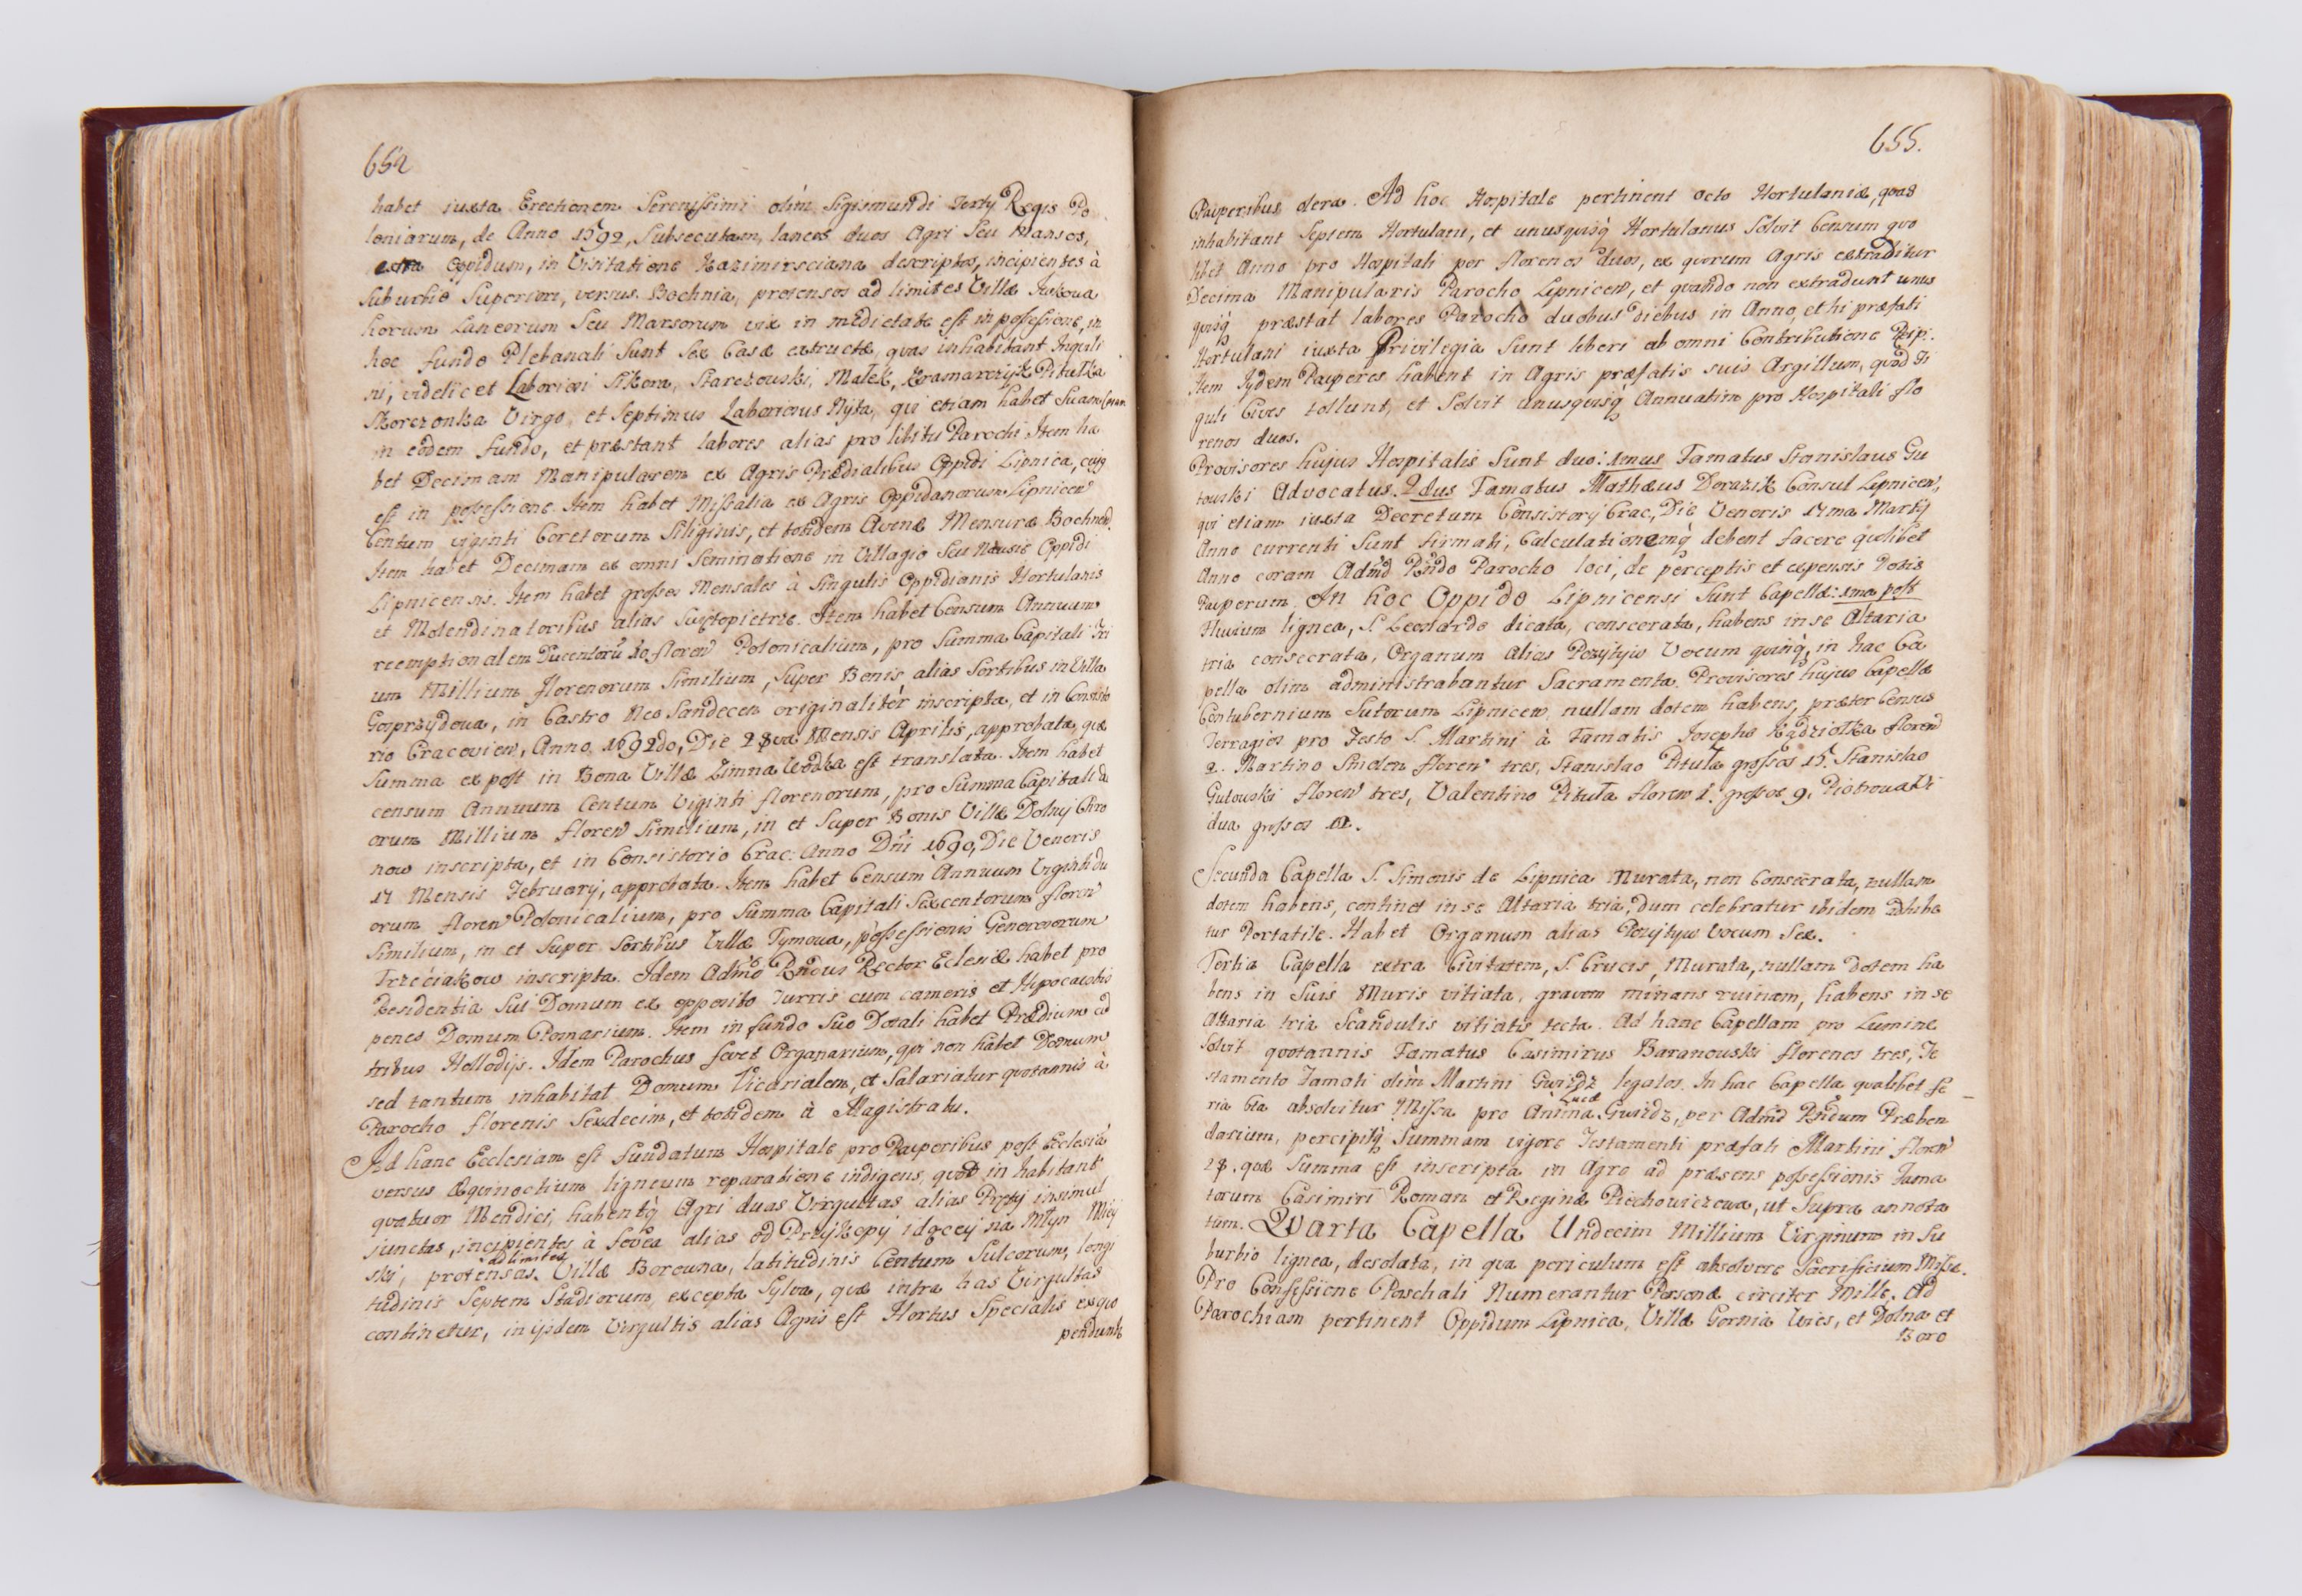 652
habet iuxta Erectionem Serenissimi olim Sigismundi Terty Regis Po
loniarum, de Anno 1592, Subsecutam, laneos duos Agri Seu Mansos,
extra Oppidum, in Visitatione Kazimirsciana descriptos, incipientes à
Suburbio Superiori, versus Bochnia, protensos ad limites Villæ
horum Laneorum Seu Mansorum vix in medietate est in possessione, in
hoc fundo Plebanali Sunt Sex Casæ extructæ, quas inhabitant Inquili
ni, videlicet Laboriosi Sikora, Starczowski, Małek, Kramarczyk Pitułka
Skorczonka Virgo, et Septimus Laboriosus Nyta, qui etiam habet Suam
in eodem fundo, et præstant labores alias pro libitu Parochi Item ha
bet Decimam Manipularem ex Agris Prædialibus Oppidi Lipnica, cujq
est in possessione. Item habet Missalia ex Agris Oppidanorum Lipnicen
Centum viginti Coretorum Siliginis, et totidem Avenæ Mensuræ Bochnen.
Item habet Decimam ex omni Seminatione in Villagio Seu Oppidi
Lipnicensis. Item habet grossos Mensales à Singulis Oppidianis Hortulanis
et Molendinatoribus alias Swiętopietrze. Item habet Censum Annuum
reemptionalem Ducentorũ 10 floren Polonicalium, pro Summa Capitali Tri
um Millium florenorum Similium, Super Bonis alias Sortibus in Villa
Gosprzydowa, in Castro Neo Sandecen originalitèr inscripta, et in Consisto
rio Cracovien, Anno 1692do, Die 28va Mensis Aprilis, approbata, quæ
Summa ex post in Bona Villæ Zimna Wodka est translata. Item habet
censum Annuum Centum Viginti florenorum, pro Summa Capitali du
orum Millium floren Similium, in et Super Bonis Villæ Dolny Chro
now inscripta, et in Consistorio Crac: Anno Dni 1690, Die Veneris
17 Mensis February, approbata. Item habet Censum Annuum Viginti du
orum floren Polonicalium, pro Summa Capitali Sexcentorum floren
Similium, in et Super Sortibus Villæ Tymowa, possessionis Generosorum
Trzeciakow inscripta. Idem Admd Rndus Rector Eclesiæ habet pro
Residentia Sui Domum ex opposito Turris cum cameris et Hipocaustis
penes Domum Pomarium. Item in fundo Suo Dotali habet Prædium cũ
tribus Hollodys. Idem Parochus fovet Organarium, qui non habet Domum
sed tantum inhabitat Domum Vicarialem, et Salariatur quotannis à
Parocho florenis Sexdecim, et totidem à Magistratu.
Ad hanc Ecclesiam est fundatum Hospitale pro Pauperibus post Eclesiã
versus Æquinoctium ligneum reparatione indigens, quod in habitant
quatuor Mendici, habentq Agri duas Virgultas alias Pręty insimul
junctas, incipientes à fovea alias od Przykopy idącey na Młyn Miey
ski, protensas ad limites Villæ Borowna, latitudinis Centum Sulcorum, longi
tudinis Septem Stadiorum, excepta Sylva, quæ intra has Virgultas
continetur, in ijsdem Virgultis alias Agris est Hortus Specialis ex quo
pendunt
655.
Pauperibus dera. Ad hoc Hospitale pertinent octo Hortulaniæ, quas
inhabitant Septem Hortulani, et unusquisq Hortulanus Solvit Censum quo
libet Anno pro Hospitali per florenos duos, ex quorum Agris extraditur
Decima Manipularis Parocho Lipnicen, et quando non extradunt unus
quisq præstat labores Parocho duobus diebus in Anno, et hi præfati
Hortulani iuxta Privilegia Sunt liberi ab omni Contributione Reip:.
Item Iydem Pauperes habent in Agris præfatis suis Argillum, quod Fi
guli Cives tollunt, et Solvit unusquisq Annuatim pro Hospitali flo
renos duos.
Provisores hujus Hospitalis Sunt duo: 1mus Famatus Stanislaus Gu
towski Advocatus. 2dus Famatus Mathæus Dorazik Consul Lipnicen,
qui etiam iuxta Decretum Consistory Crac, Die Veneris 17ma Marty
Anno currenti Sunt firmati, Calculationemq debent facere quolibet
Anno coram Admd Rndo Parocho loci, de perceptis et expensis Dotis
Pauperum. In hoc Oppido Lipnicensi Sunt Capellæ: 1ma post
fluvium lignea, S. Leonardo dicata, consecrata, habens in se Altaria
tria consecrata, Organum alias Pozytyw Vocum quinq, in hac Ca
pella olim administrabantur Sacramenta. Provisores hujus Capellæ
Contubernium Sutorum Lipnicen, nullam dotem habens, præter Census
Terragios pro Festo S. Martini à Famatis Josepho Kądziołka floren
2. Martino Smolen floren tres, Stanislao Pituła grossos 15. Stanislao
Gutowski floren tres, Valentino Pituła floren 1. grossos 9. Piotrowski
dua grossos
Secunda Capella S. Simonis de Lipnica Murata, non Consecrata, nullam
dotem habens, continet in se Altaria tria, dum celebratur ibidem adhibe
tur Portatile. Habet Organum alias Pozytyw Vocum Sex.
Tertia Capella extra Civitatem, S. Crucis, Murata, nullam dotem ha
bens in Suis Muris vitiata, gravem minans ruinam, habens in se
Altaria tria Scandulis vitiatis tecta. Ad hanc Capellam pro Lumine
Solvit quotannis Famatus Casimirus Baranowski florenos tres, Te
stamento Famati olim Martini Gwizdz legatos. In hac Capella qualibet fe
ria 6ta absolvitur Missa pro Anima Lucæ Gwizdz, per Admd Rndum Præben
darium, percipitq Summam vigore Testamenti præfati Martini floren
28, quæ Summa est inscripta in Agro ad præsens possessionis Fama
torum Casimiri Roman et Reginæ Piechowiczowa, ut Supra annota
tum. Quarta Capella Undecim Millium Virginum in Su
burbio lignea, desolata, in qua periculum est absolvere Sacrificium Missæ.
Pro Confessione Paschali Numerantur Personæ circiter Mille. Ad
Parochiam pertinent Oppidum Lipnica, Villæ Gornia Wies, et Dolna et
Boro